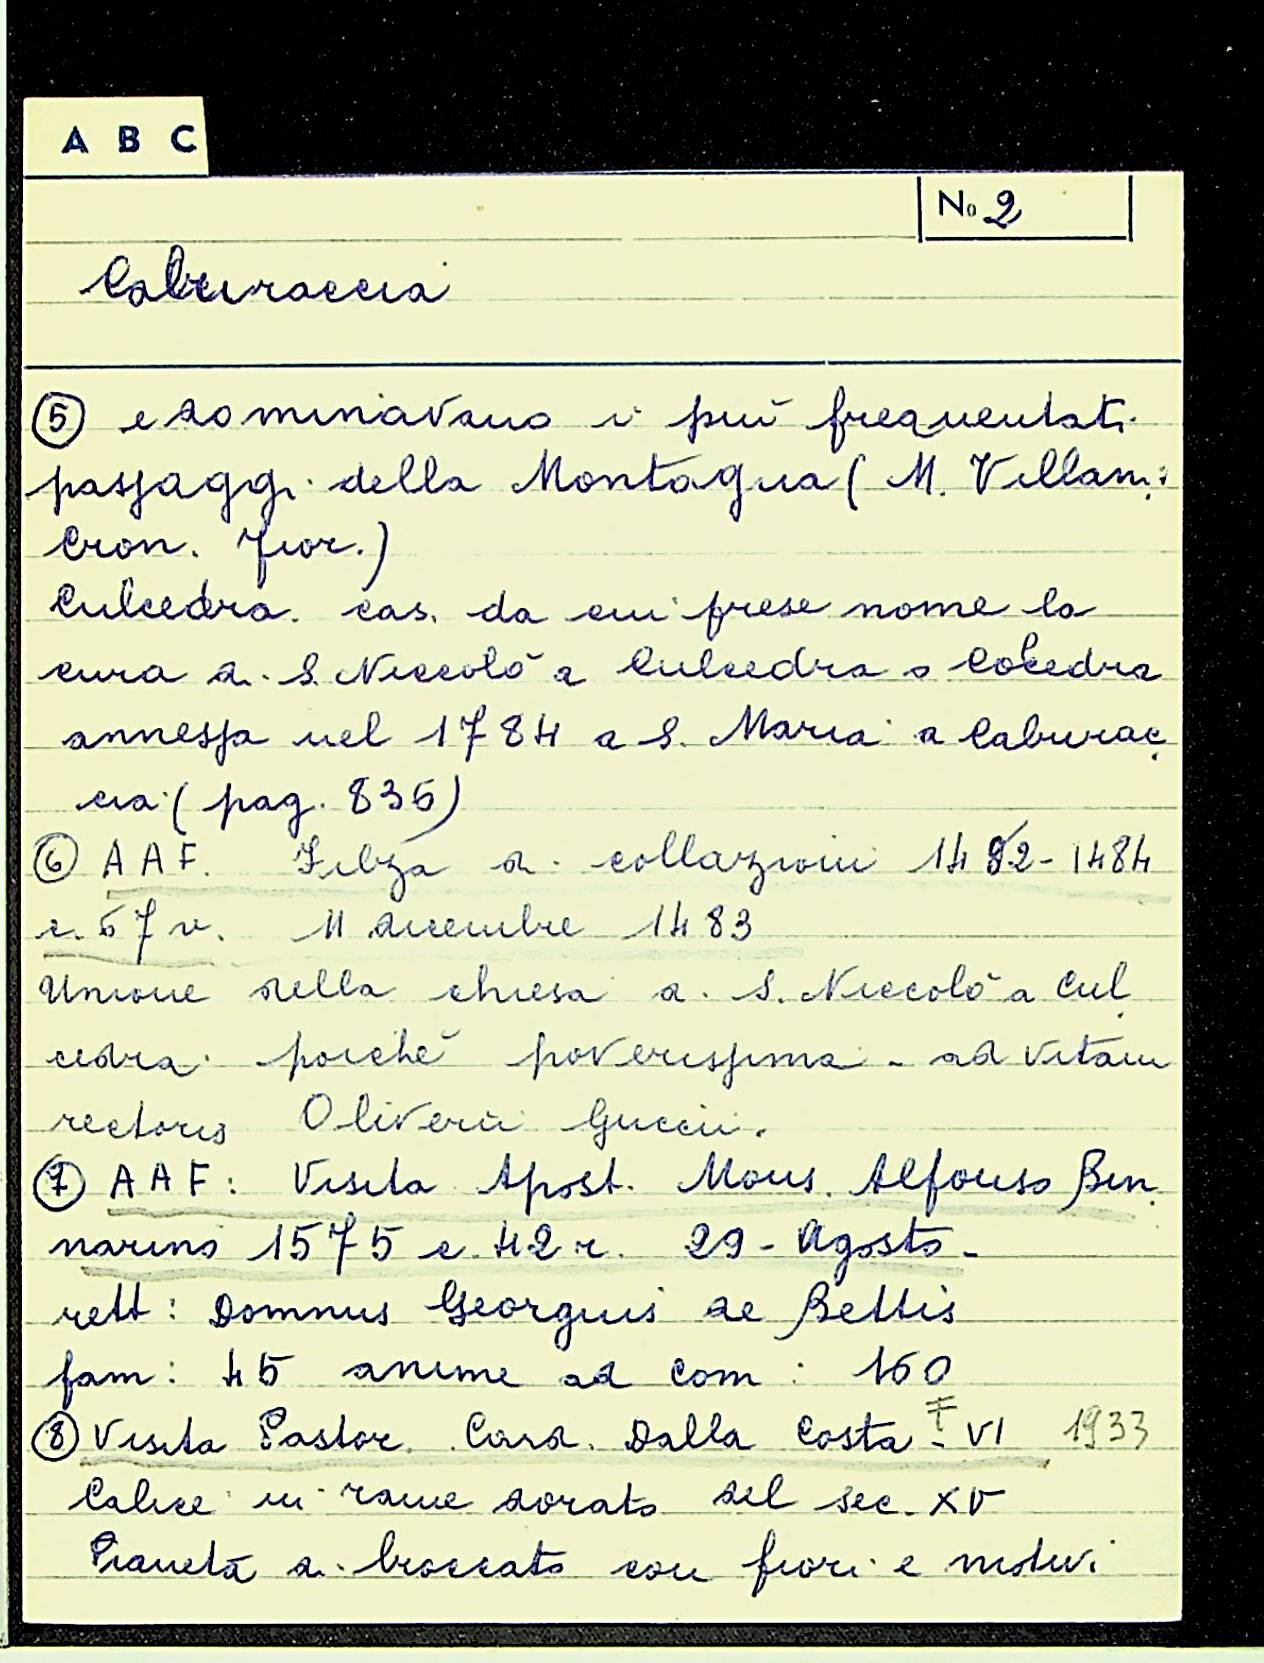 A B C
No 2
Caburaccia
⑤ e dominavano i più frequentati
passaggi della Montagna (M. Villani:
Cron. Fior.)
Culcedra. cas. da cui prese nome la
cura di S. Niccolò a Culcedra o Colcedra
annessa nel 1784 a S. Maria a Caburac
cia (pag. 836)
⑥ AAF. Filza di collazioni 1482-1484
c. 67 v. 11 dicembre 1483
Unione della chiesa di S. Niccolò a Cul
cedra poichè poverissima - ad vitam
rectoris Oliverii Guccii.
⑦ AAF: Visita Apost. Mons. Alfonso Bin
narino 1575 c. 42 r. 29 - Agosto -
rett: Domnus Georgius de Bettis
fam: 45 anime ad com: 160
⑧ Visita Pastor. Card. Dalla Costa - VI 1933
Calice in rame dorato del sec. XV
Pianeta di broccato con fiori e motivi